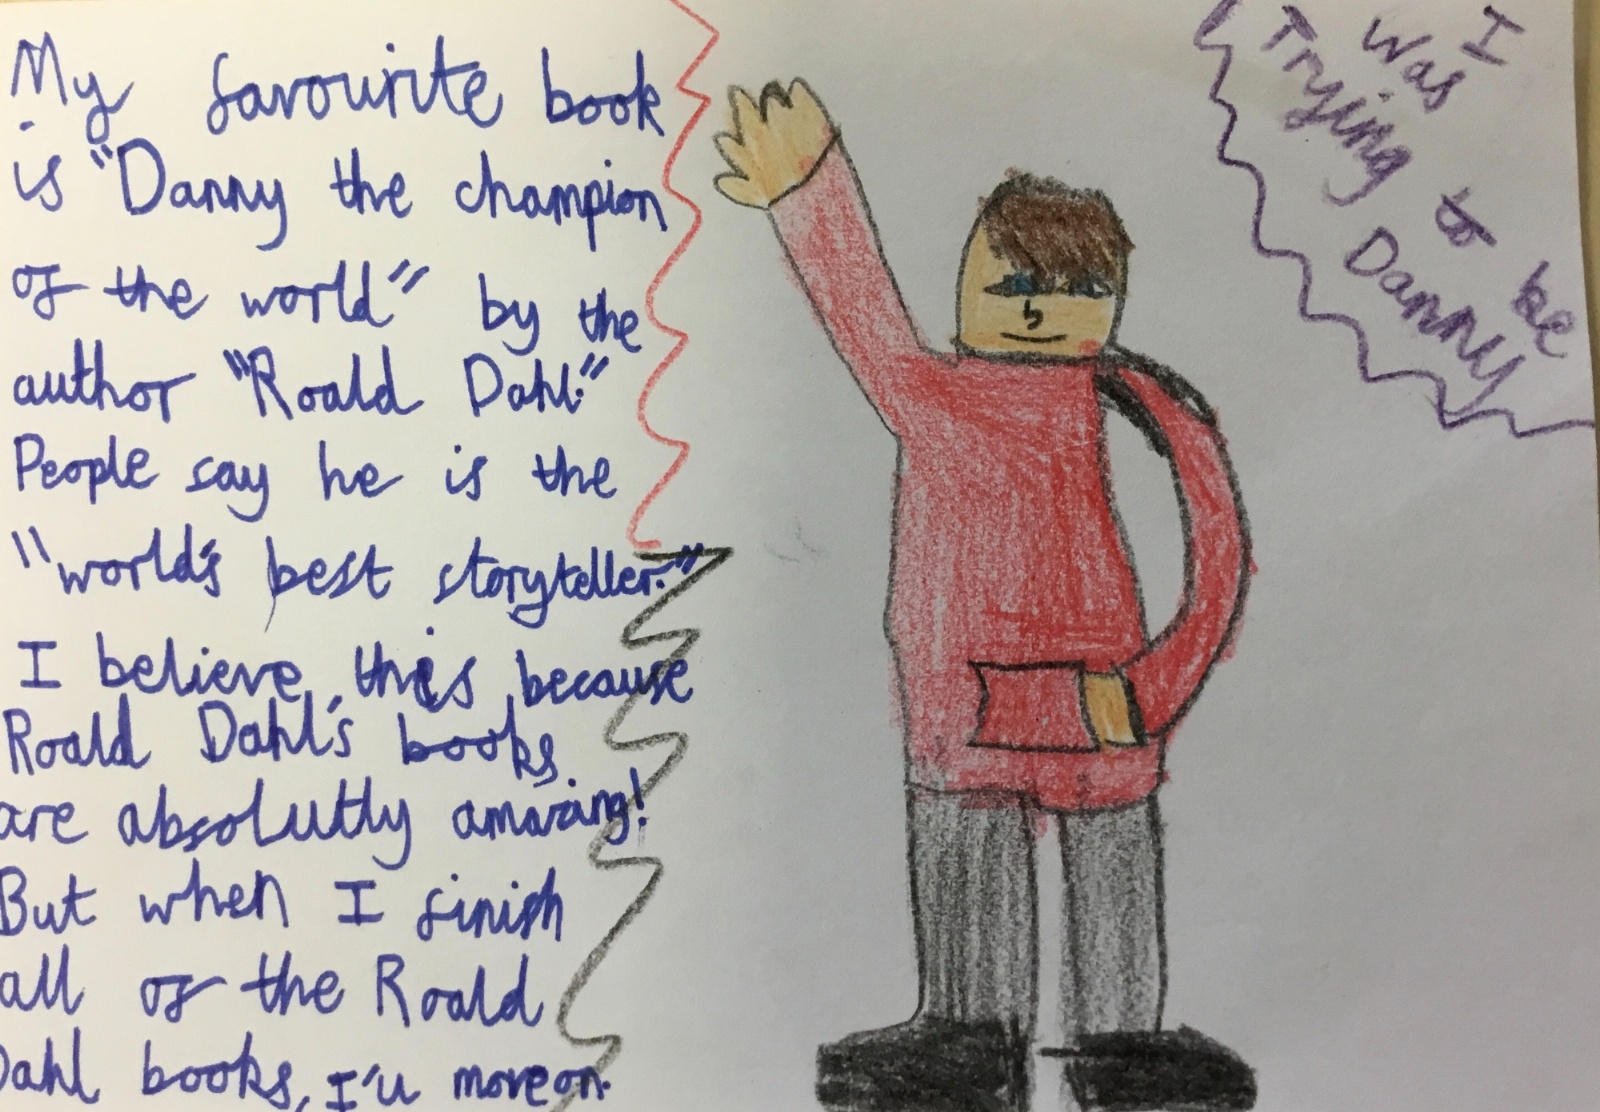 My favourite book
is "Danny the champion
of the world" by the
author "Roald Dahl."
People say he is the
"world's best storyteller."
I believe this because
Roald Dahl's books
are absolutly amazing!
But when I finish
all of the Roald
Dahl books, I'll move on.
I
was
Trying to be
Danny